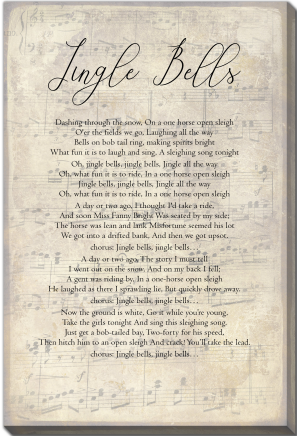 Jingle Bells
Dashing through the snow, On a one horse open sleigh
O'er the fields we go, Laughing all the way
Bells on bob tail ring, making spirits bright
What fun it is to laugh and sing, A sleighing song tonight
Oh, jingle bells, jingle bells, Jingle all the way
Oh, what fun it is to ride, In a one horse open sleigh
Jingle bells, jingle bells, Jingle all the way
Oh, what fun it is to ride, In a one horse open sleigh
A day or two ago, I thought I'd take a ride,
And soon Miss Fanny Bright Was seated by my side;
The horse was lean and lank Misfortune seemed his lot
We got into a drifted bank, And then we got upsot.
chorus: Jingle bells, jingle bells...
A day or two ago, The story I must tell
I went out on the snow, And on my back I fell;
A gent was riding by, In a one-horse open sleigh
He laughed as there I sprawling lie, But quickly drove away.
chorus: Jingle bells, jingle bells...
Now the ground is white, Go it while you're young,
Take the girls tonight And sing this sleighing song,
Just get a bob-tailed bay, Two-forty for his speed,
Then hitch him to an open sleigh And crack! You'll take the lead.
chorus: Jingle bells, jingle bells...